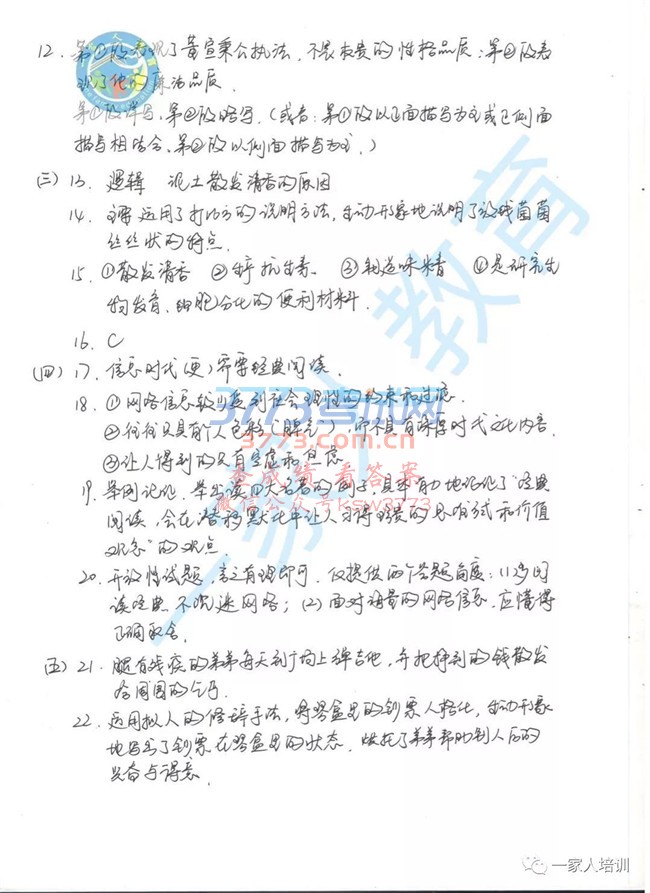 12. 第①段表现了黄宣秉公执法、不畏权贵的性格品质；第②段表
现了他的廉洁品质.
第①段详写，第②段略写.（或者：第①段以正面描写为主或正侧面
描写相结合、第②段以侧面描写为主.）
(三) 13. 逻辑 泥土散发清香的原因
14. 主要运用了打比方的说明方法，生动形象地说明了放线菌菌
丝丝状的特点.
15. ①散发清香 ②生产抗生素. ③制造味精 ④是研究生
物发育、细胞分化的便利材料.
16. C
(四) 17. 信息时代(更)需要经典阅读.
18. ①网络信息较少受到社会理性的约束和过滤
②往往只具有个人色彩(“脾气”)，而不具有时代文化内容.
③让人得到的只有空虚和焦虑
19. 举例论证，举出读四大名著的例子，具体有力地论证了“经典
阅读，会在潜移默化中让人习得宝贵的思维方式和价值
观念”的观点.
20. 开放性试题，言之有理即可. 仅提供两个答题角度：(1)多阅
读经典，不沉迷网络；(2)面对海量的网络信息，应懂得
正确取舍.
(五) 21. 腿有残疾的弟弟每天到广场上弹吉他，并把挣到的钱散发
给周围的乞丐.
22. 运用拟人的修辞手法，将琴盒里的钞票人格化，生动形象
地写出了钞票在琴盒里的状态. 烘托了弟弟帮助别人后的
兴奋与得意.
一家人教育
3773考试网
3773.com.cn
查成绩 看答案
微信公众号ksw3773
一家人培训